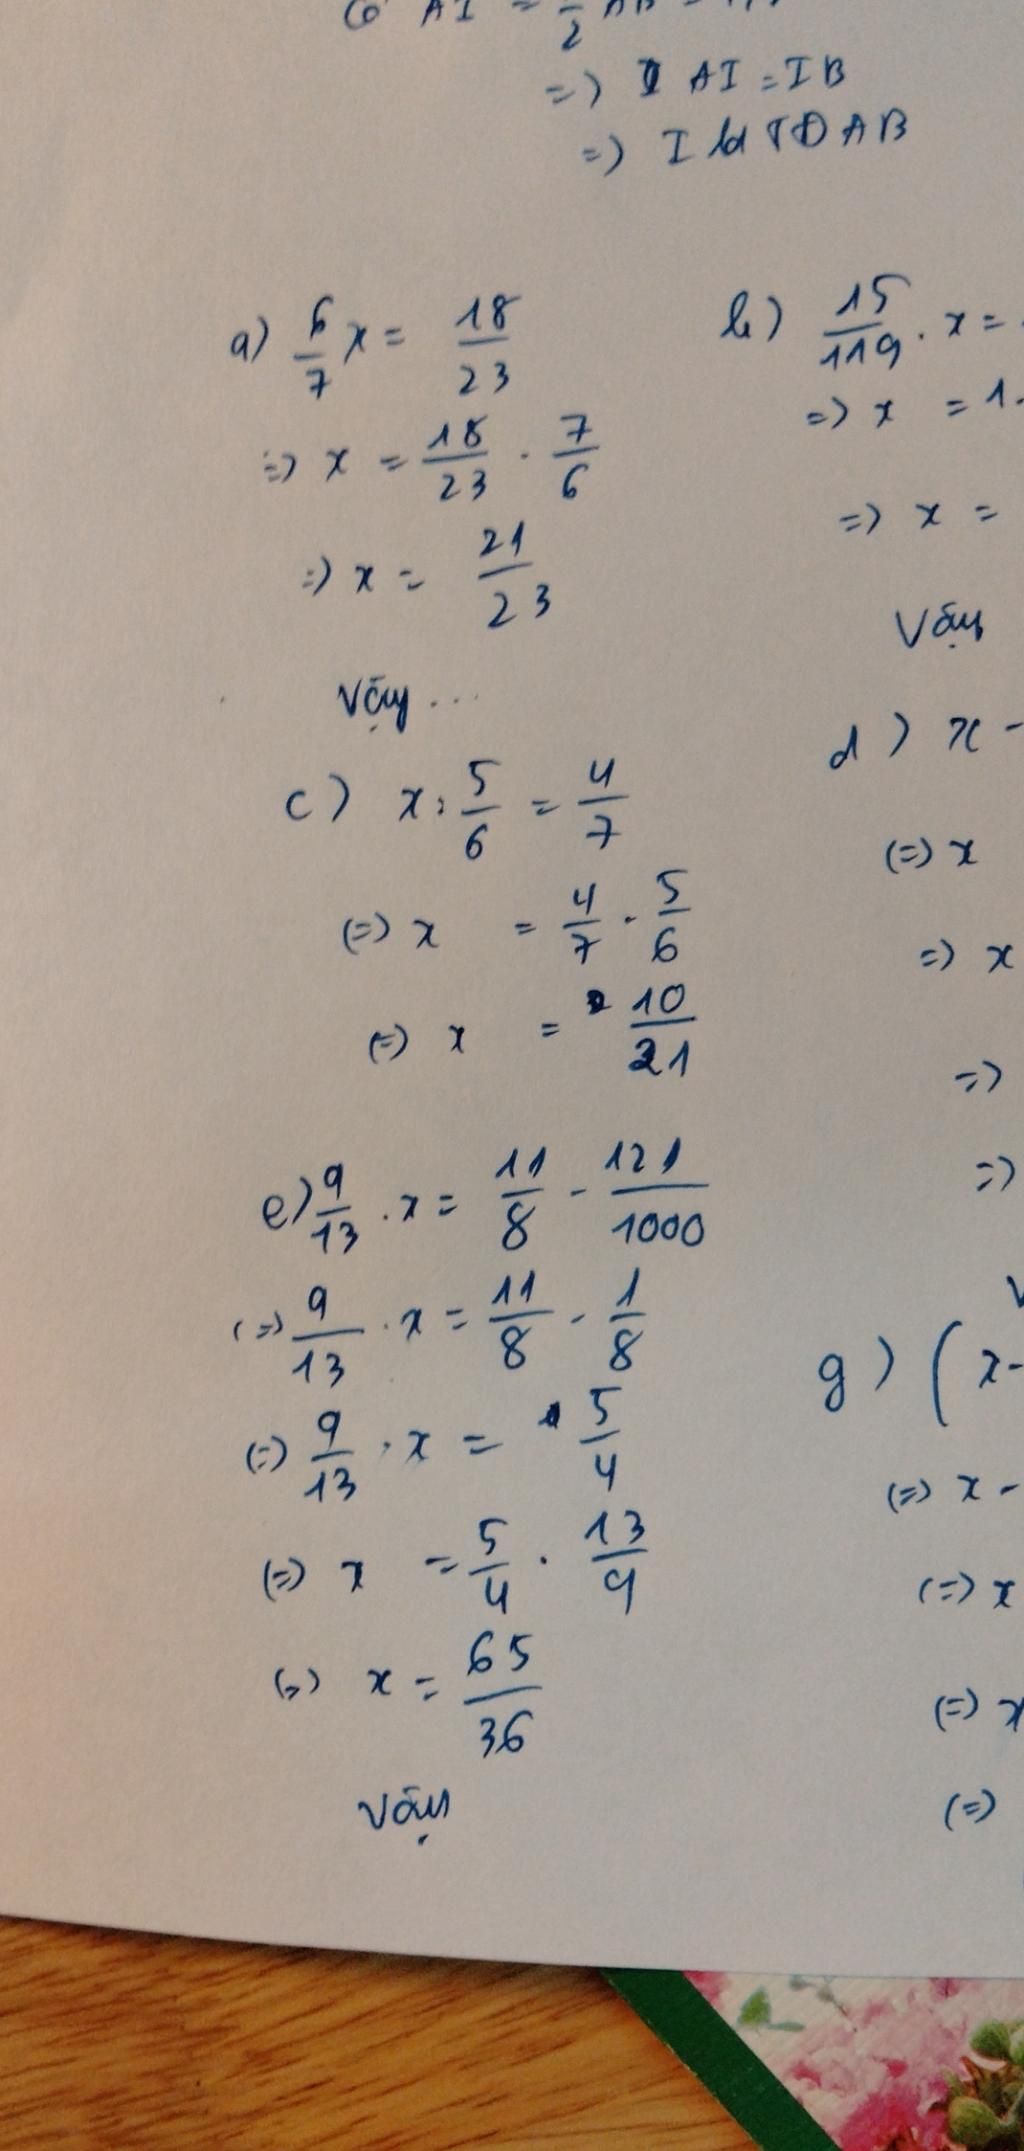 AI = 1/2 AB
=) AI = IB
=) I là TĐ AB
a) 6/7 x = 18/23
=) x = 18/23 . 7/6
=) x = 21/23
Vậy ...
c) x : 5/6 = 4/7
(=) x = 4/7 . 5/6
(=) x = 10/21
e) 9/13 . x = 11/8 - 121/1000
(=) 9/13 . x = 11/8 - 1/8
(=) 9/13 . x = 5/4
(=) x = 5/4 . 13/9
(=) x = 65/36
Vậy
b) 15/119 . x =
=) x = 1.
=) x =
Vậy
d) x -
(=) x
=) x
=)
=)
g) ( x -
(=) x -
(=) x
(=) x
(=)